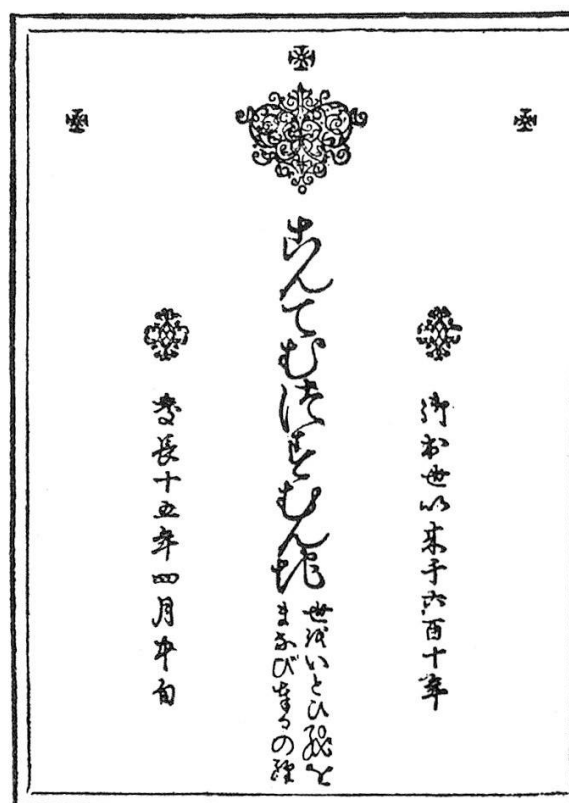 御出世以来千六百十年
こんてむつすむん地
世をいとひ を
まなび奉るの經
慶長十五年四月中旬